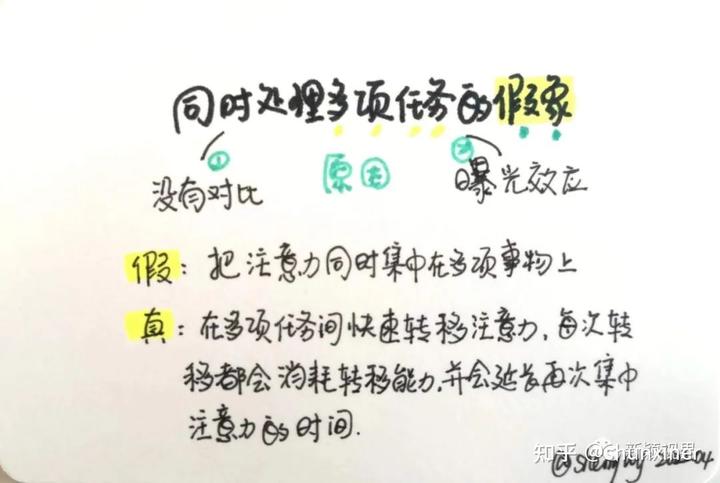 同时处理多项任务的假象
① 原因 ②
没有对比 曝光效应
假：把注意力同时集中在多项事物上
真：在多项任务间快速转移注意力，每次转
移都会消耗转移能力，并会延长再次集中
注意力的时间.
知乎 @Shunxiner
新颖视界